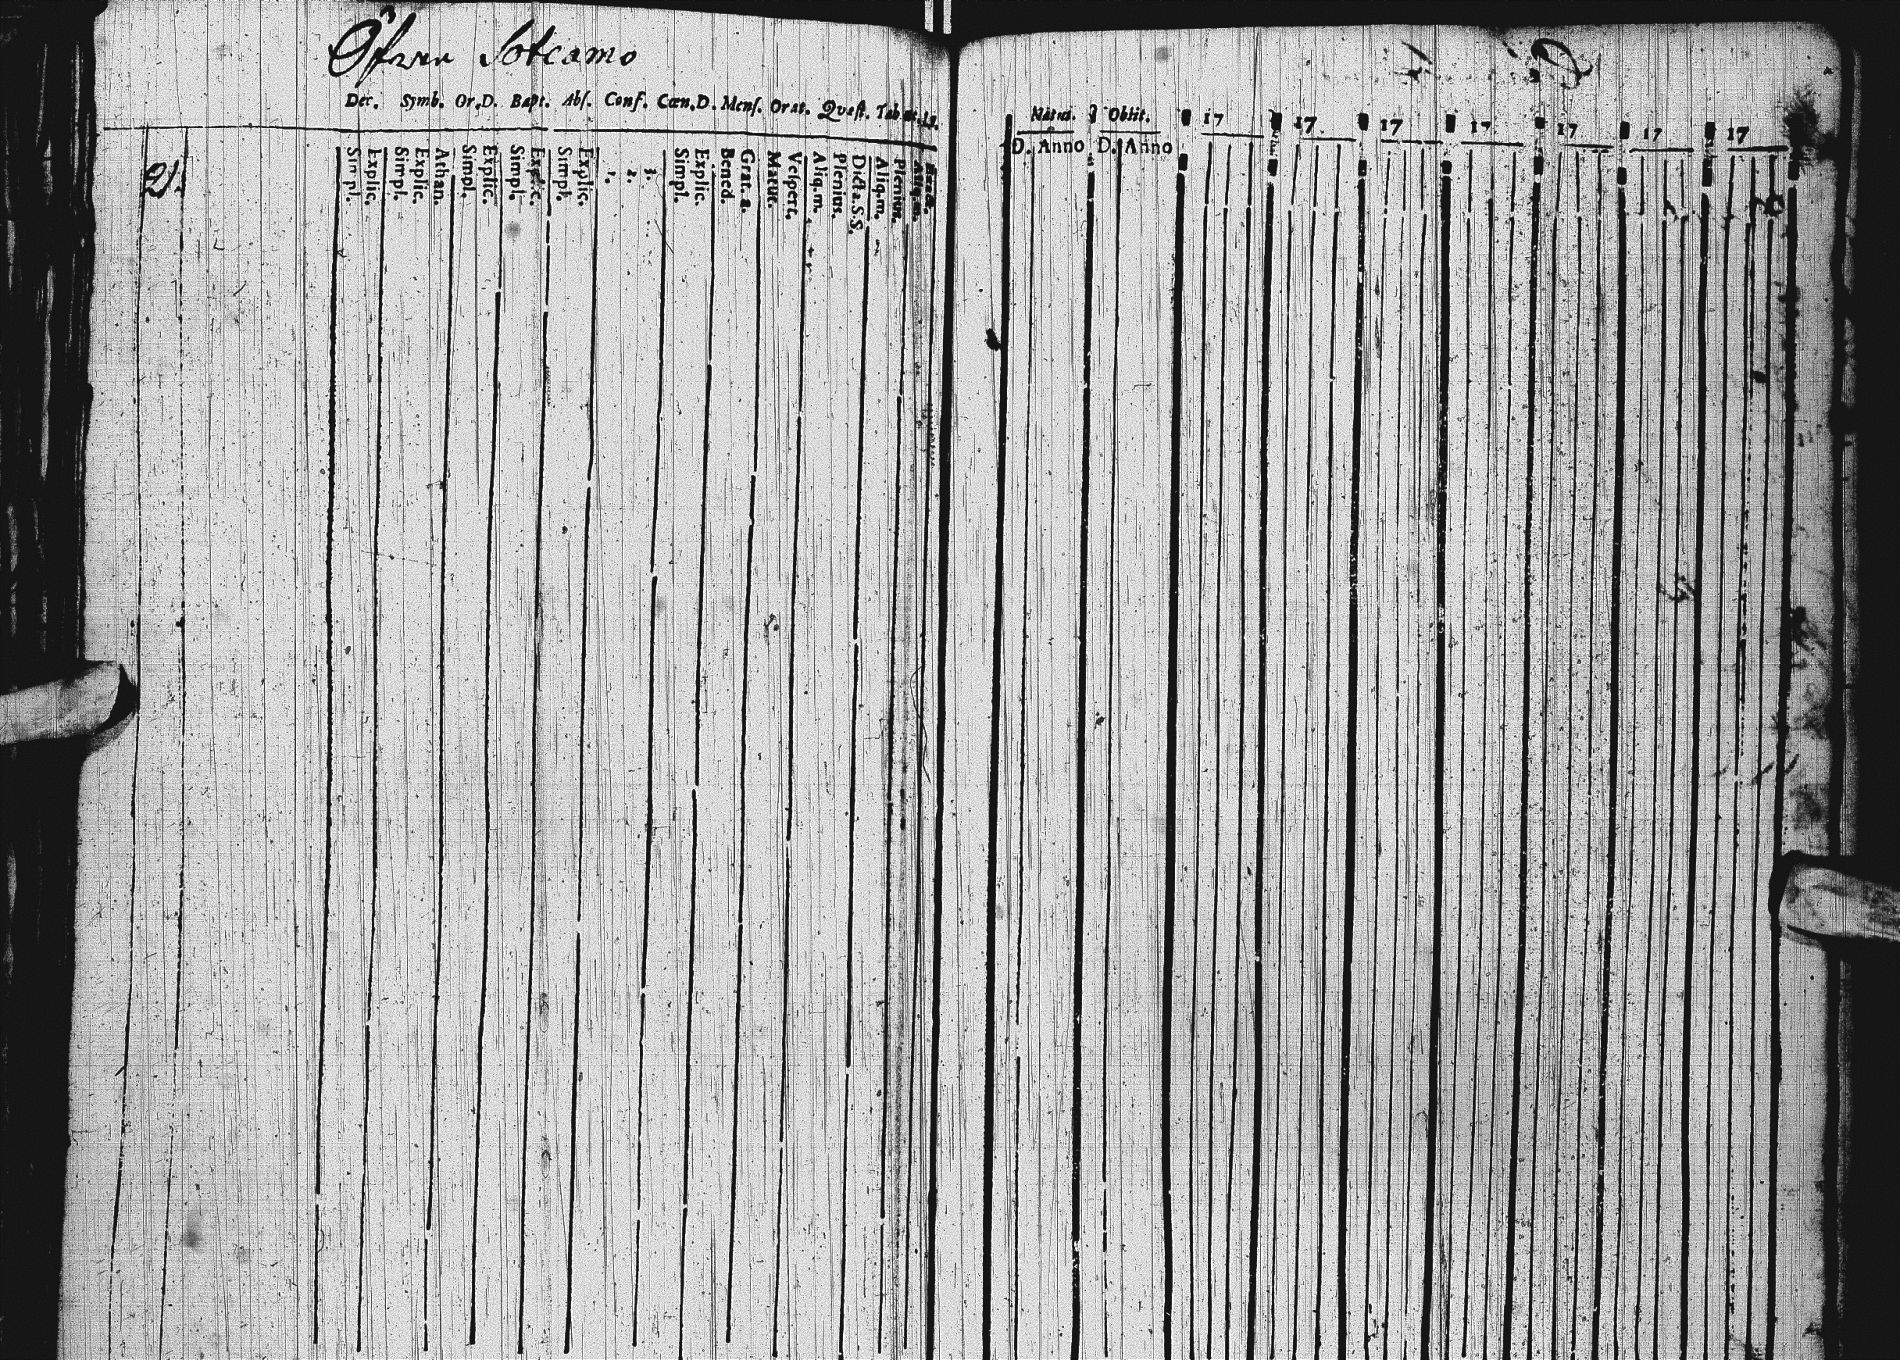 Öfver Sotcamo
Dec. Symb. Or.D. Bapt. Abſ. Conf. Cœn.D. Menſ. Orat. Quæſt. Tab.
21.
Simpl.
Explic.
Simpl.
Explic.
Athan.
Simpl.
Explic.
Simpl.
Explic.
Simpl.
Explic.
1.
2.
3.
Simpl.
Explic.
Bened.
Grat. a.
Matut.
Veſpert.
Aliq.m.
Plenius.
Dicta.S.S.
Aliq.m.
Plenius.
Natus. Obiit. 17 17 17 17 17 17 17
D. Anno D. Anno